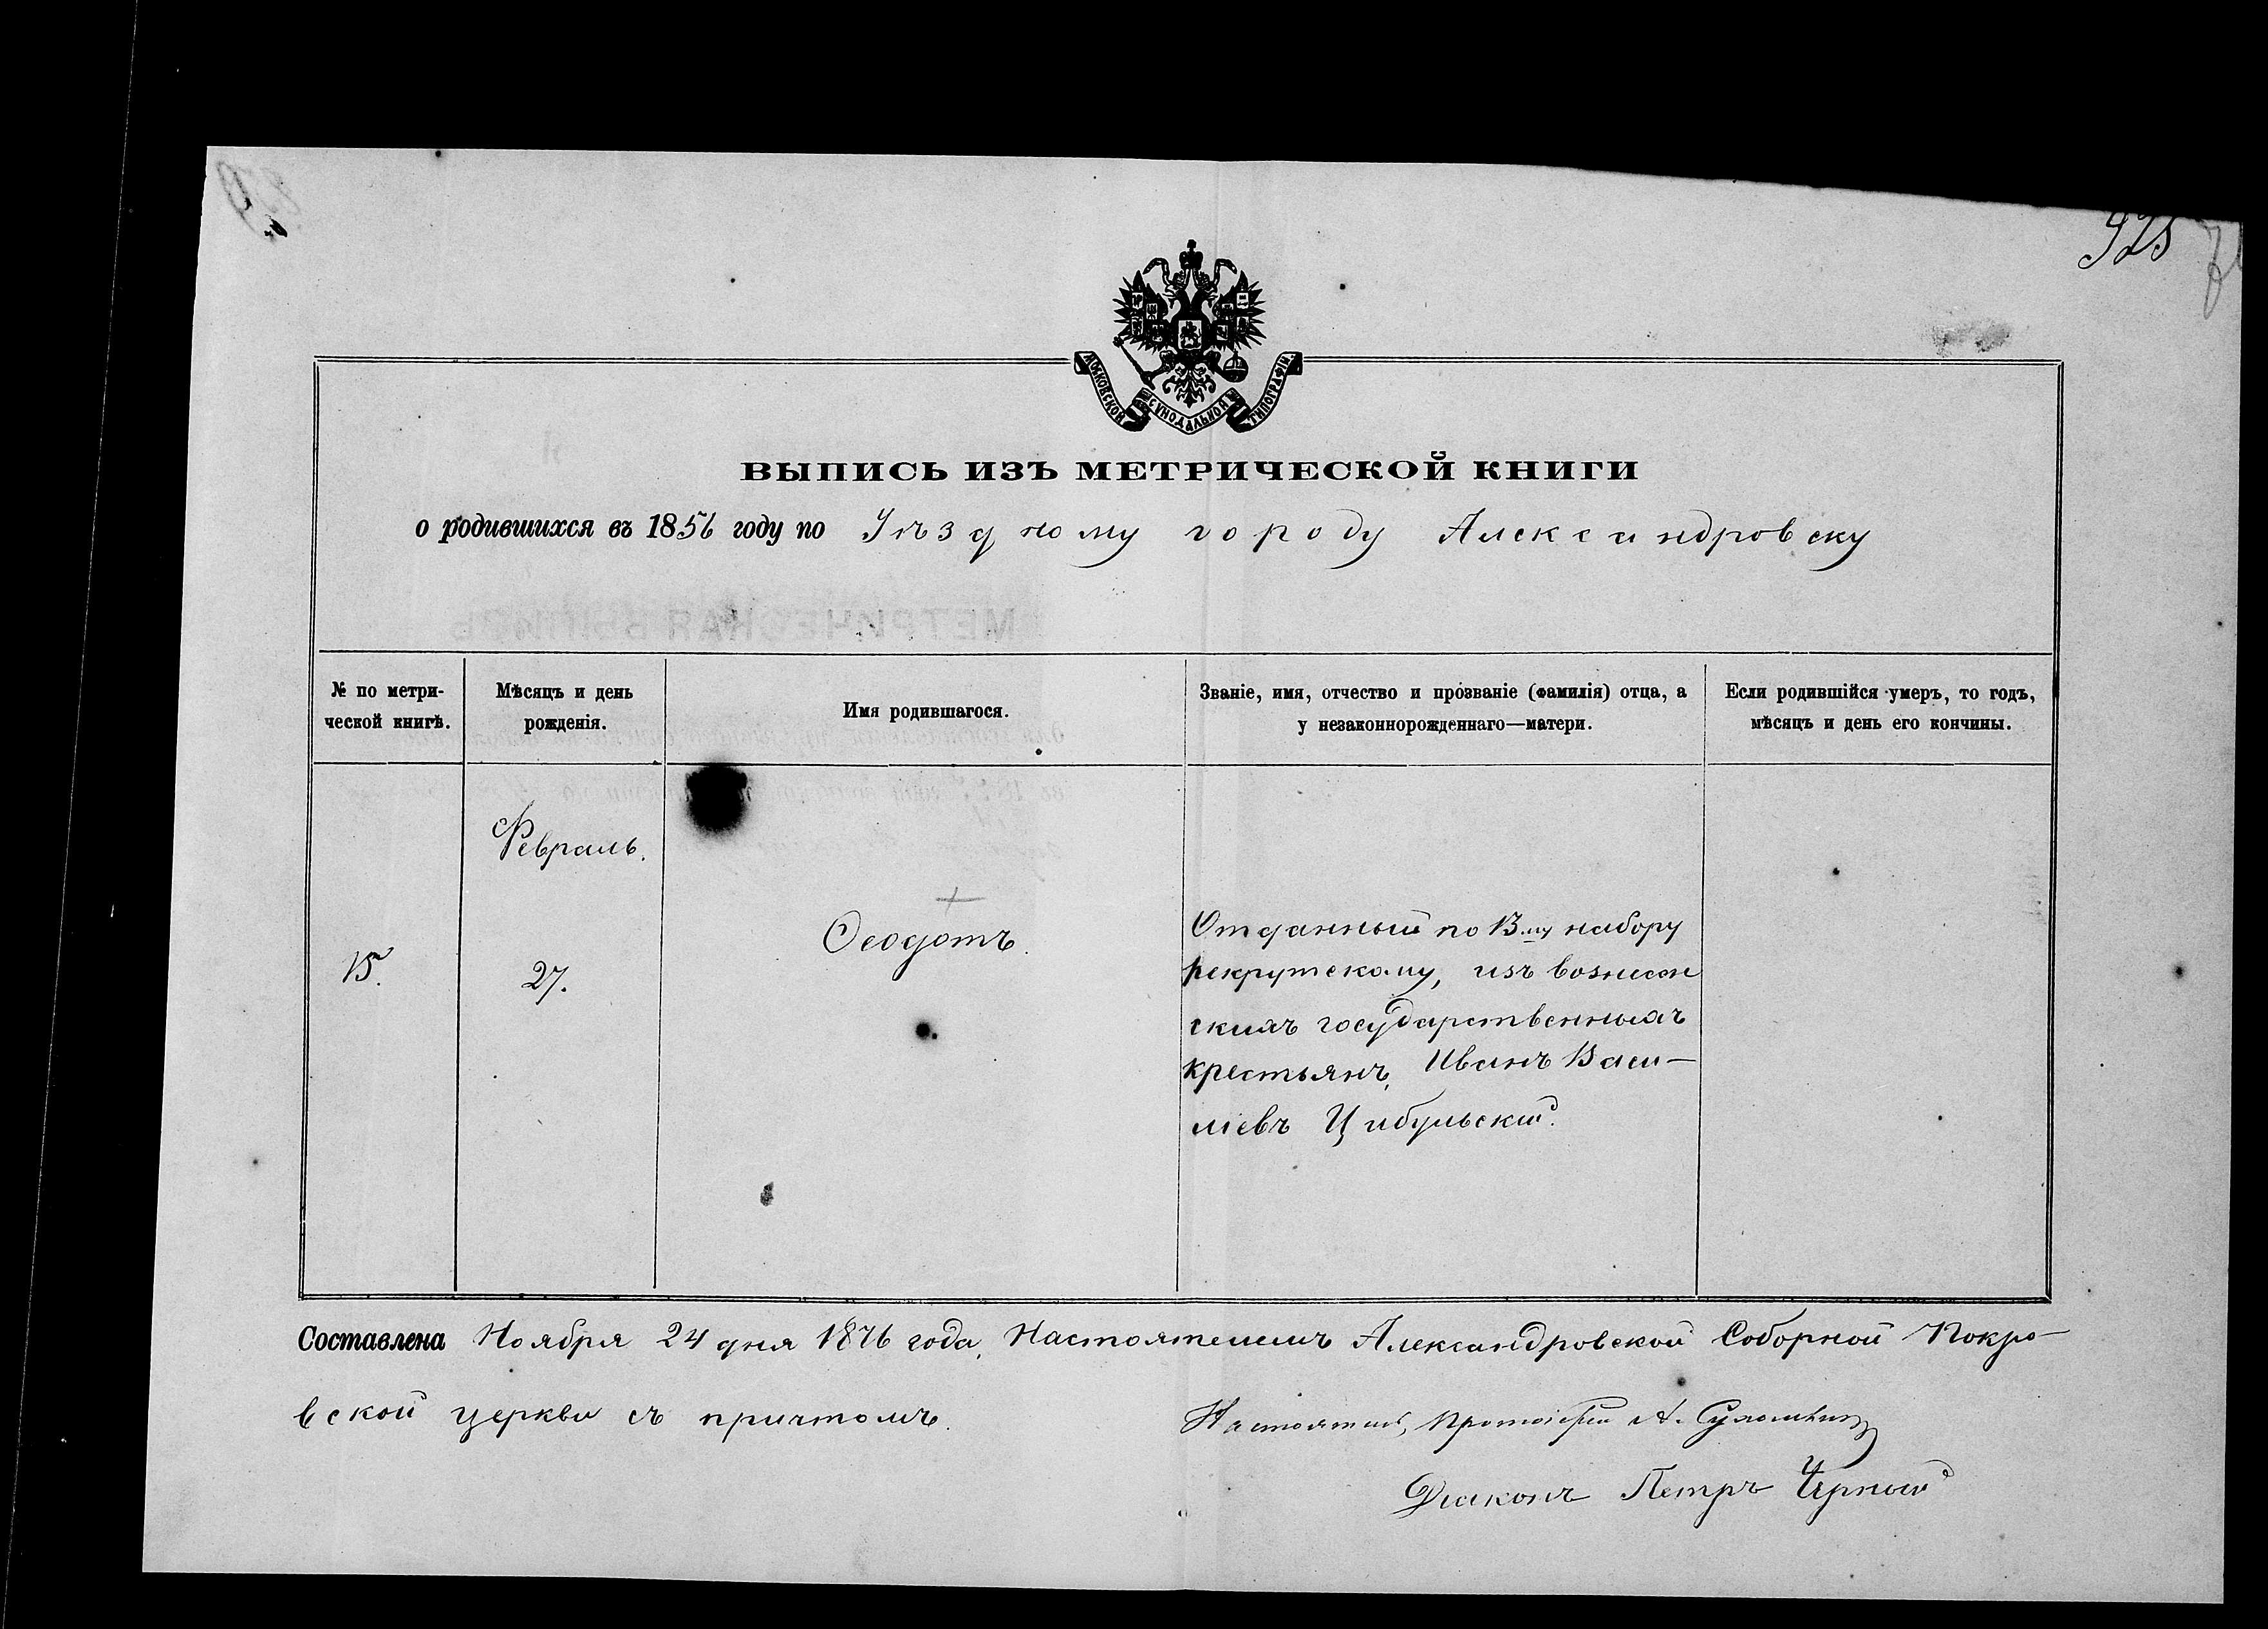 925
МОСКОВСКОЙ СУНОДАЛЬНОЙ ТИПОГРАФІИ.
ВЫПИСЬ ИЗЪ МЕТРИЧЕСКОЙ КНИГИ
о родившихся въ 1856 году по Уѣздному городу Александровску
№ по метри-
ческой книгѣ.
Мѣсяцъ и день
рожденія.
Имя родившагося.
Званіе, имя, отчество и прозваніе (фамилія) отца, а
у незаконнорожденнаго—матери.
Если родившійся умеръ, то годъ,
мѣсяцъ и день его кончины.
15.
Февраль.
27.
Ѳеодотъ.
Отданный по 13му набору
рекрутскому, изъ вознесен
скихъ государственныхъ
крестьянъ, Иванъ Васи–
ліевъ Цибульскій.
Составлена Ноября 24 дня 1876 года, Настоятелемъ Александровской Соборной Покро–
вской церкви съ причтомъ.
Настоятель, Протоіерей А.
Діаконъ Петръ Черный